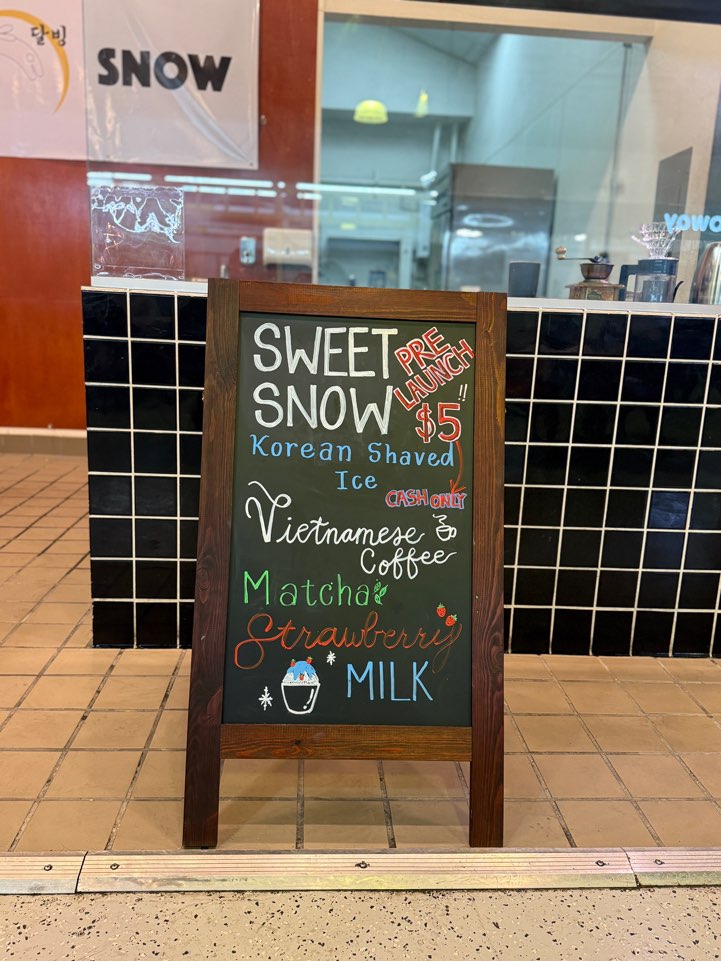 달빙
SNOW
YOWO
SWEET
SNOW
PRE
LAUNCH
$5!!
Korean Shaved
Ice
CASH ONLY
Vietnamese
Coffee
Matcha
Strawberry
MILK